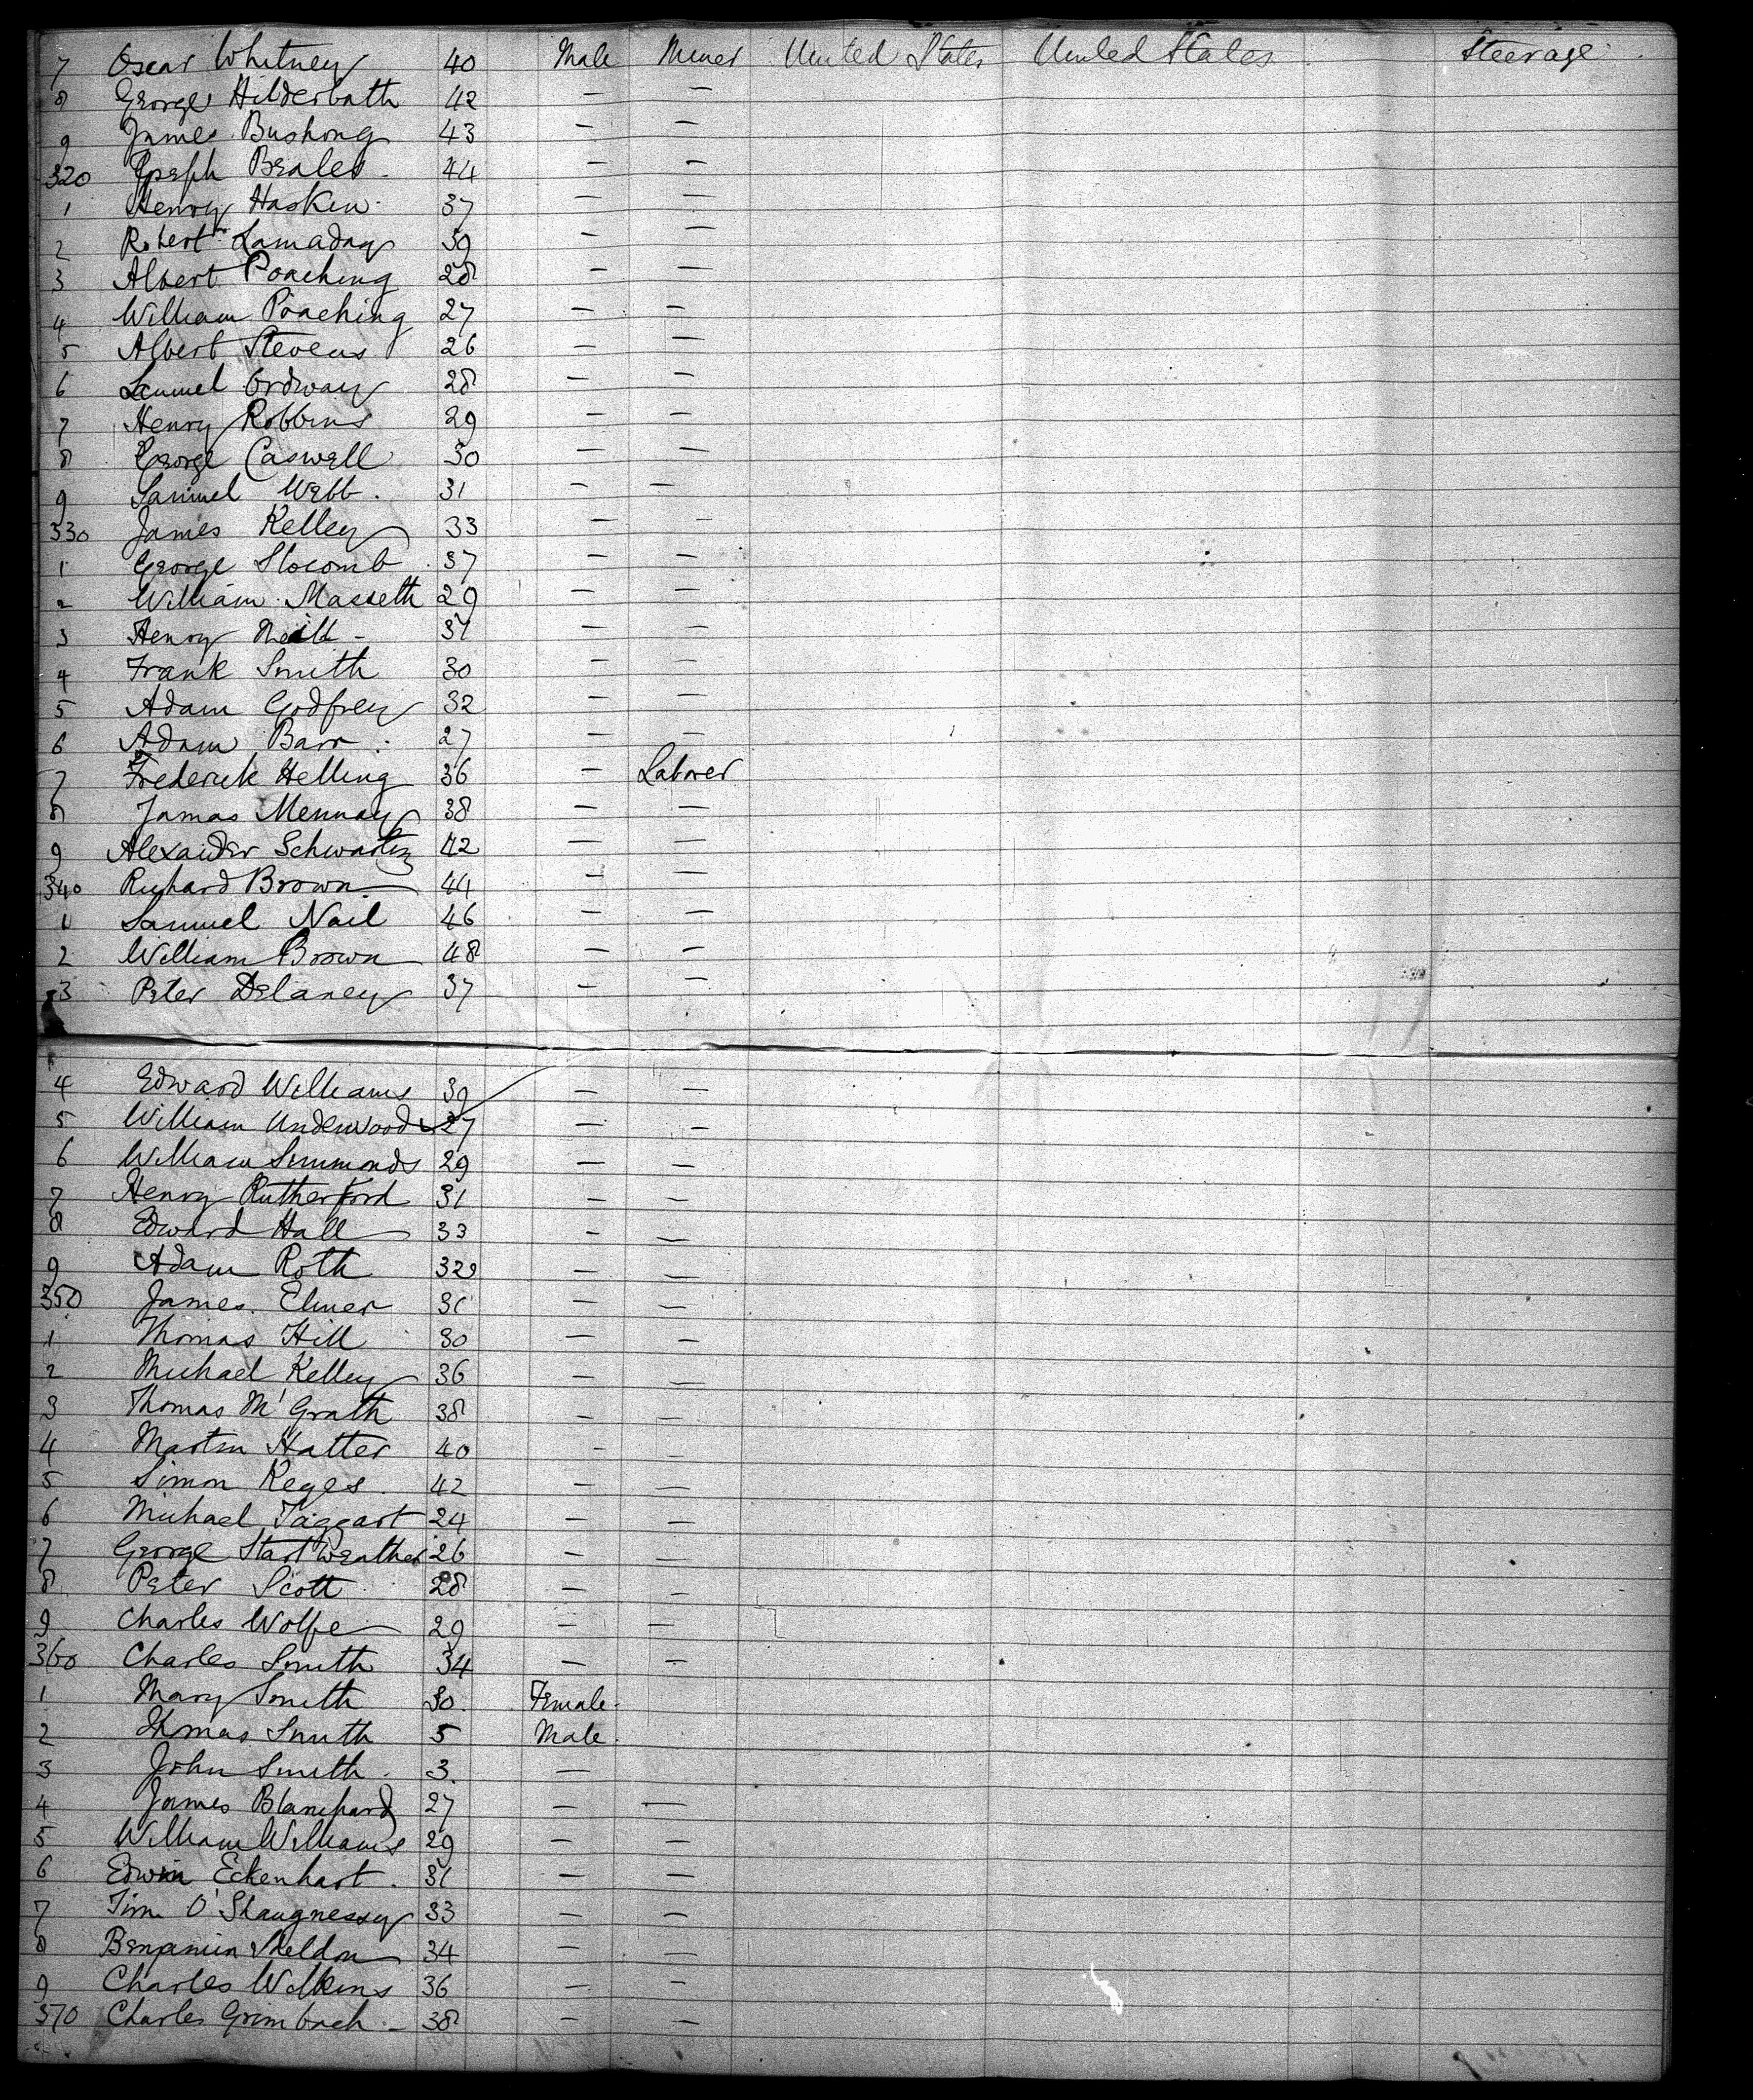 7 Oscar Whitney 40 Male Miner United States United States Steerage
8 George Hilderbath 42 — —
9 James Bushong 43 — —
320 Joseph Beales 44 — —
1 Henry Haskin 37 — —
2 Robert Lamaday 39 — —
3 Albert Poaching 28 — —
4 William Poaching 27 — —
5 Albert Stevens 26 — —
6 Lemuel Ordway 28 — —
7 Henry Robbins 29 — —
8 George Caswell 30 — —
9 Samuel Webb 31 — —
330 James Kelley 33 — —
1 George Slocomb 37 — —
2 William Masseth 29 — —
3 Henry 31 — —
4 Frank Smith 30 — —
5 Adam Godfrey 32 — —
6 Adam Barr 27 — —
7 Frederick Helling 36 — Laborer
8 James Mennay 38 — —
9 Alexander Schwartz 42 — —
340 Richard Brown 44 — —
1 Samuel Nail 46 — —
2 William Brown 48 — —
3 Peter Delaney 37 — —
4 Edward Williams 39 — —
5 William Underwood 27 — —
6 William Simmonds 29 — —
7 Henry Rutherford 31 — —
8 Edward Hall 33 — —
9 Adam Roth 32 — —
350 James Elmer 31 — —
1 Thomas Hill 30 — —
2 Michael Kelley 36 — —
3 Thomas M'Grath 38 — —
4 Martin Hatter 40 — —
5 Simon Keges 42 — —
6 Michael Taggart 24 — —
7 George Startweather 26 — —
8 Peter Scott 28 — —
9 Charles Wolfe 29 — —
360 Charles Smith 34 — —
1 Mary Smith 30 Female
2 Thomas Smith 5 Male
3 John Smith 3 —
4 James Blanchard 27 — —
5 William Williams 29 — —
6 Edwin Eckenhart 31 — —
7 Tim O'Shaugnessy 33 — —
8 Benjamin Sheldon 34 — —
9 Charles Wilkins 36 — —
370 Charles Grimbach 38 — —